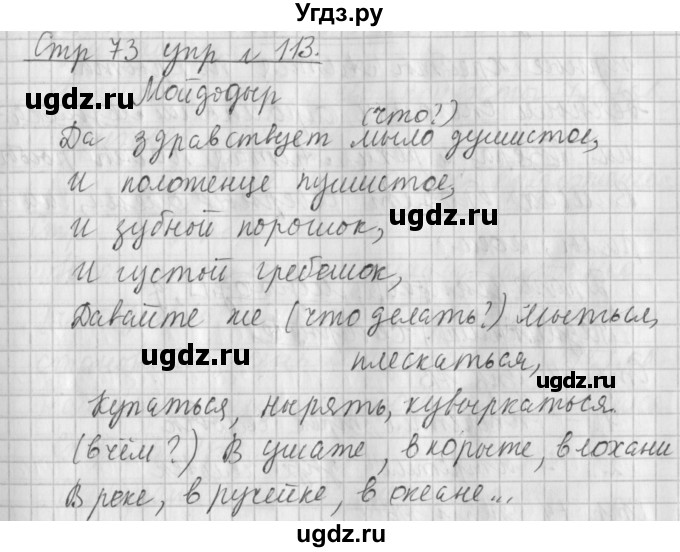 Угдз.ру
Стр 73 упр № 113.
ugdz.ru
Мойдодыр
ugdz.ru
(что?)
Да здравствует мыло душистое,
И полотенце пушистое,
ugdz.ru
И зубной порошок,
И густой гребешок,
Давайте же (что делать?) мыться,
ugdz.ru
плескаться,
ugdz.ru
Купаться, нырять, кувыркаться.
(в чём?) В ушате, в корыте, в лохани
В реке, в ручейке, в океане...
ugdz.ru